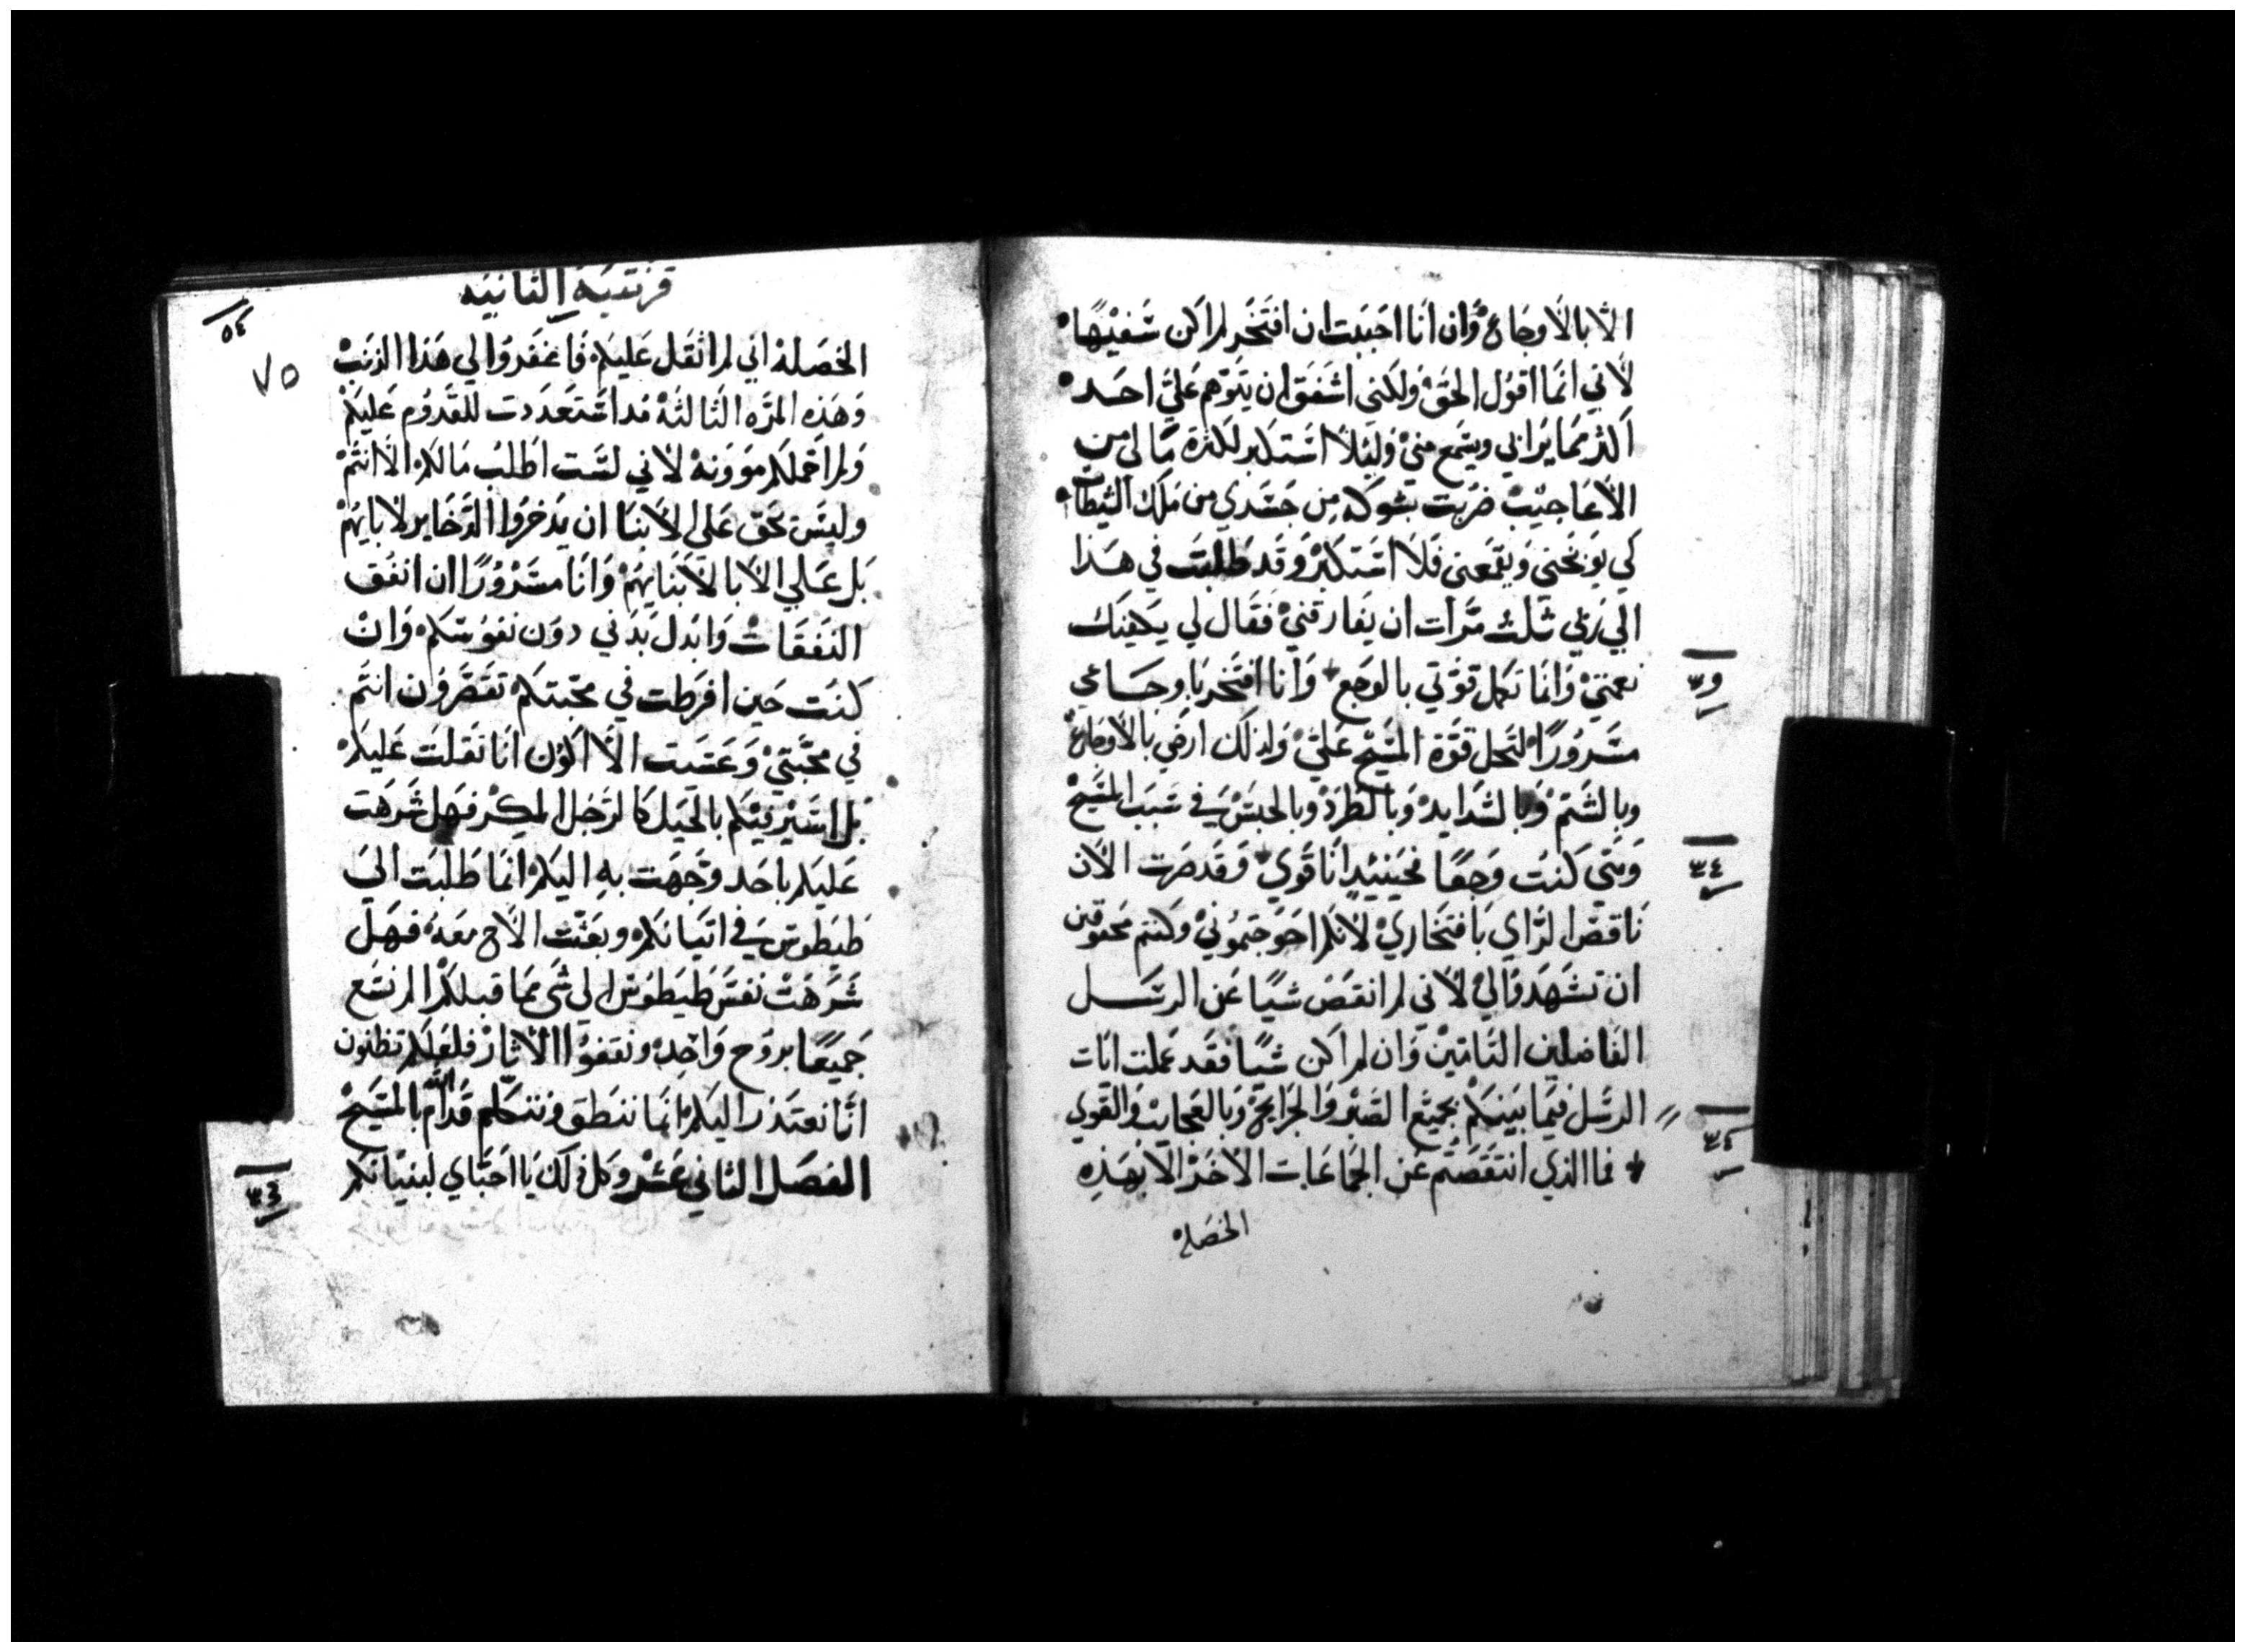 الا بالاوجاع وان انا احببت ان افتخر لم اكن سفيهًا
لاني انما اقول الحق ولكني اشفق ان يتوهم علي احد
اكثر مما يراني ويسمع مني وليلا استكبر لكثرة ما لي من
الاعاجيب ضربت بشوكه من جسدي من ملك الشيطان
كي يوبخني ويقمعني فلا استكبر وقد طلبت في هذا
الي ربي ثلث مرات ان يفارقني فقال لي يكفيك
نعمتي وانما تكمل قوتي بالوجع وانا افتخر باوجاعي
مسرورًا لتحل قوة المسيح علي ولذلك ارضي بالاوجاع
وبالشتم وبالشدايد وبالطرد وبالحبس في سبب المسيح
ومتي كنت وجعًا فحينيدٍ انا قوي وقد صرت الان
ناقص الراي بافتخاري لانكم احوجتموني وكنتم محقوقين
ان تشهدوا لي لاني لم انقص شيًا عن الرسل
الفاضلين التامين وان لم اكن شيًا فقد عملت ايات
الرسل فيما بينكم بجميع الصبر والجرايح وبالعجايب والقوي
فما الذي انتقصتم عن الجماعات الاخر الا بهذه
الخصله
٣٩
٣٤
٣٤
قرنتيه الثانيه
٥٤
٧٥
الخصلة اني لم اثقل عليكم فاغفروا لي هذا الذنب
وهذه المره الثالثه قد استعددت للقدوم عليكم
ولم احملكم موونه لاني لست اطلب مالكم الا انتم
وليس بحق علي الابنا ان يدخروا الدخاير لابايهم
بل علي الابا لابنايهم وانا مسرورًا ان انفق
النفقات وابدل بدني دون نفوسكم وان
كنت حين افرطت في محبتكم تقصرون انتم
في محبتي وعسيت الا اكون انا ثقلت عليكم
بل اسير فيكم بالحيل كالرجل المكر فهل شرهت
عليكم باحد وجهت به اليكم انما طلبت الي
طيطوس في اتيانكم وبعثت الاخ معه فهل
شرهت نفس طيطوس الي شي مما قبلكم الم نسع
جميعًا بروح واحده ونقفوا الاثار فلعلكم تظنون
انا نعتذر اليكم انما ننطق ونتكلم قدام الله بالمسيح
الفصل الثاني عشر وكل ذلك يا احباي لبنيانكم
٣٤